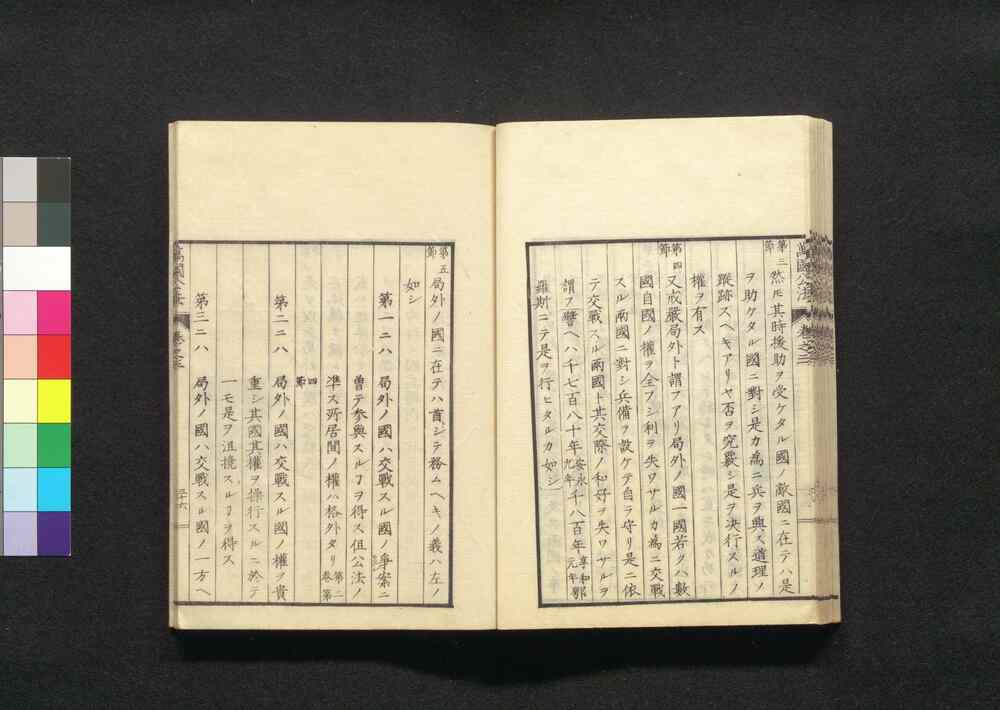 萬國公法 卷之三
第三節 然㆑𪜈其時援助ヲ受ケタル國ノ敵國ニ在テハ是
ヲ助ケタル國ニ對シ是カ為ニ兵ヲ興ス道理ノ
蹤跡スヘキアリヤ否ヲ究覈シ是ヲ決行スルノ
權ヲ有ス
第四節 又戒嚴局外ト謂フアリ局外ノ國一國若クハ數
國自國ノ權ヲ全フシ利ヲ失ワサルカ為ニ交戰
スル兩國ニ對シ兵備ヲ設ケテ自ラ守リ是ニ依
テ交戰スル兩國ト其交際ノ和好ヲ失ワサルヲ
謂フ譬ヘハ千七百八十年安永九年千八百年享和元年鄂
羅斯ニテ是ヲ行ヒタルカ如シ
第五節 局外ノ國ニ在テハ首シテ務ムヘキノ義ハ左ノ
如シ
第一ニハ 局外ノ國ハ交戰スル國ノ爭案ニ
曽テ参與スルヿヲ得ス但公法ノ
準ス所居間ノ權ハ格外タリ第二卷第
四節
第二ニハ 局外ノ國ハ交戰スル國ノ權ヲ貴
重シ其國其權ヲ操行スルニ於テ
一モ是ヲ沮撓スルヿヲ得ス
第三ニハ 局外ノ國ハ交戰スル國ノ一方ヘ
萬國公法 卷之三 三十六